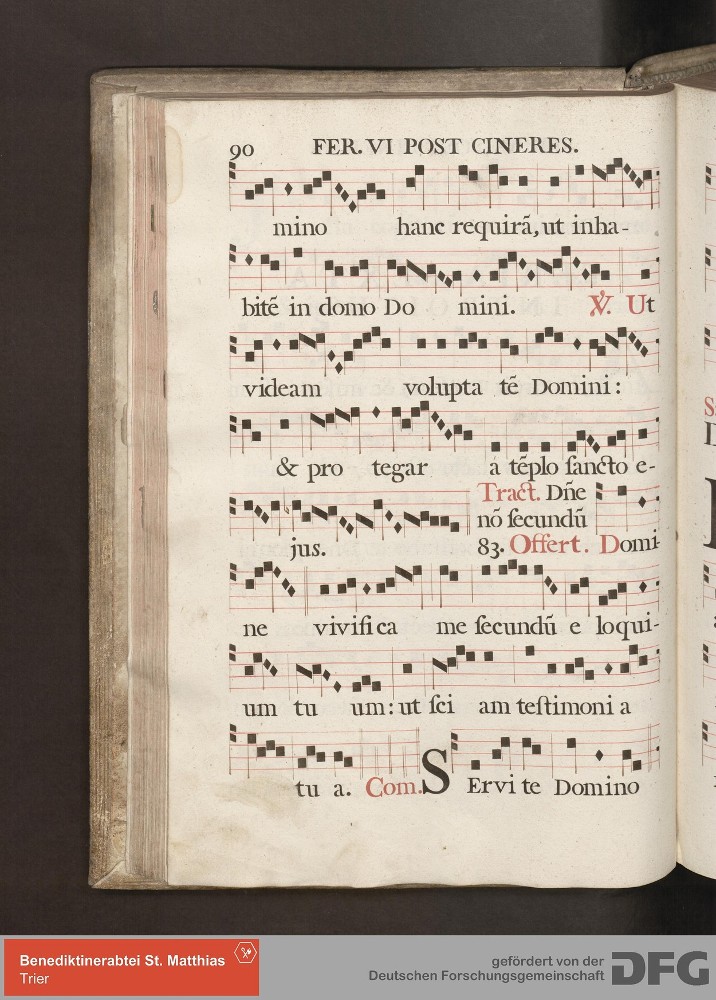 90 FER. VI POST CINERES.
mino hanc requirã, ut inha-
bitẽ in domo Do mini. ℣. Ut
videam volupta tẽ Domini:
& pro tegar á tẽplo ſancto e-
Tract. Dñe
nõ ſecundũ
jus. 83. Offert. Domi-
ne vivifica me ſecundũ e loqui-
um tu um: ut ſci am teſtimoni a
tu a. Com. SErvi te Domino
Benediktinerabtei St. Matthias
Trier
gefördert von der
Deutschen Forschungsgemeinschaft DFG